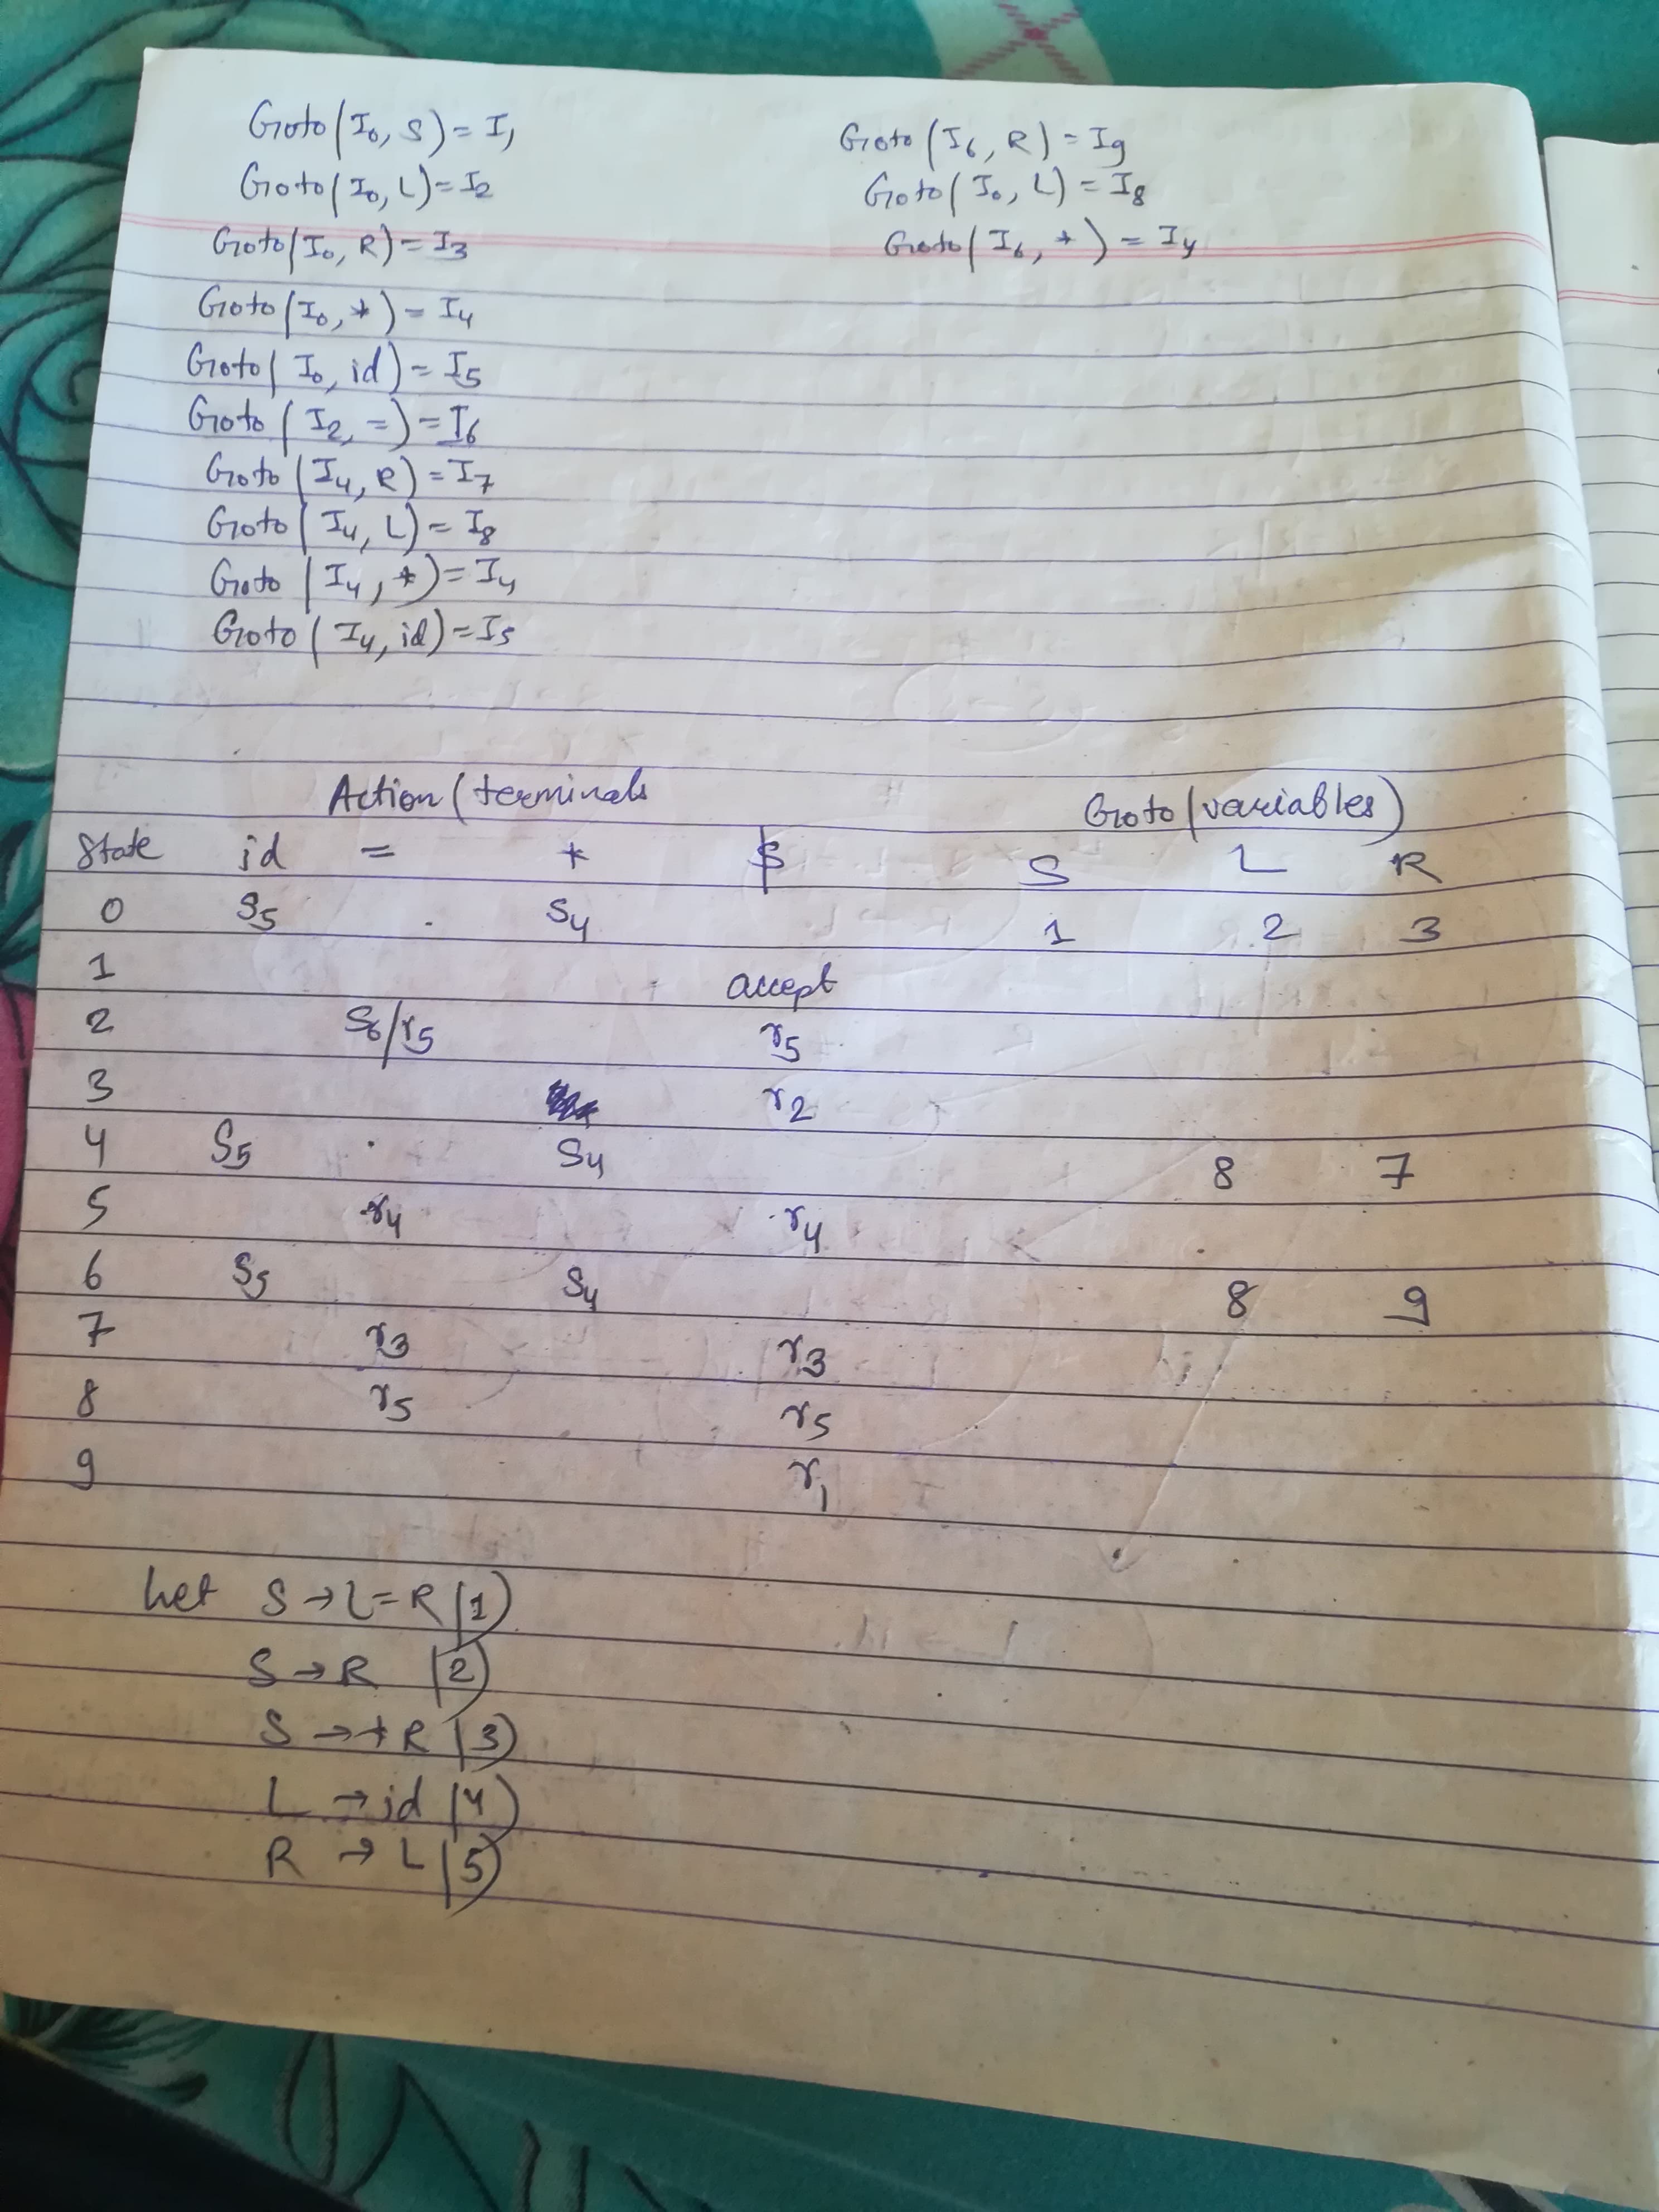 Goto(I0, S) = I1
Goto(I0, L) = I2
Goto(I0, R) = I3
Goto(I0, *) = I4
Goto(I0, id) = I5
Goto(I2, =) = I6
Goto(I4, R) = I7
Goto(I4, L) = I8
Goto(I4, *) = I4
Goto(I4, id) = I5
Goto(I6, R) = I9
Goto(I0, L) = I8
Goto(I6, *) = I4
Action(terminals Goto(variables)
State id = * $ S L R
0 S5 S4 1 2 3
1 accept
2 S6/r5 r5
3 r2
4 S5 S4 8 7
5 r4 r4
6 S5 S4 8 9
7 r3 r3
8 r5 r5
9 r1
Let S → L = R (1)
S → R (2)
S → *R (3)
L → id (4)
R → L (5)